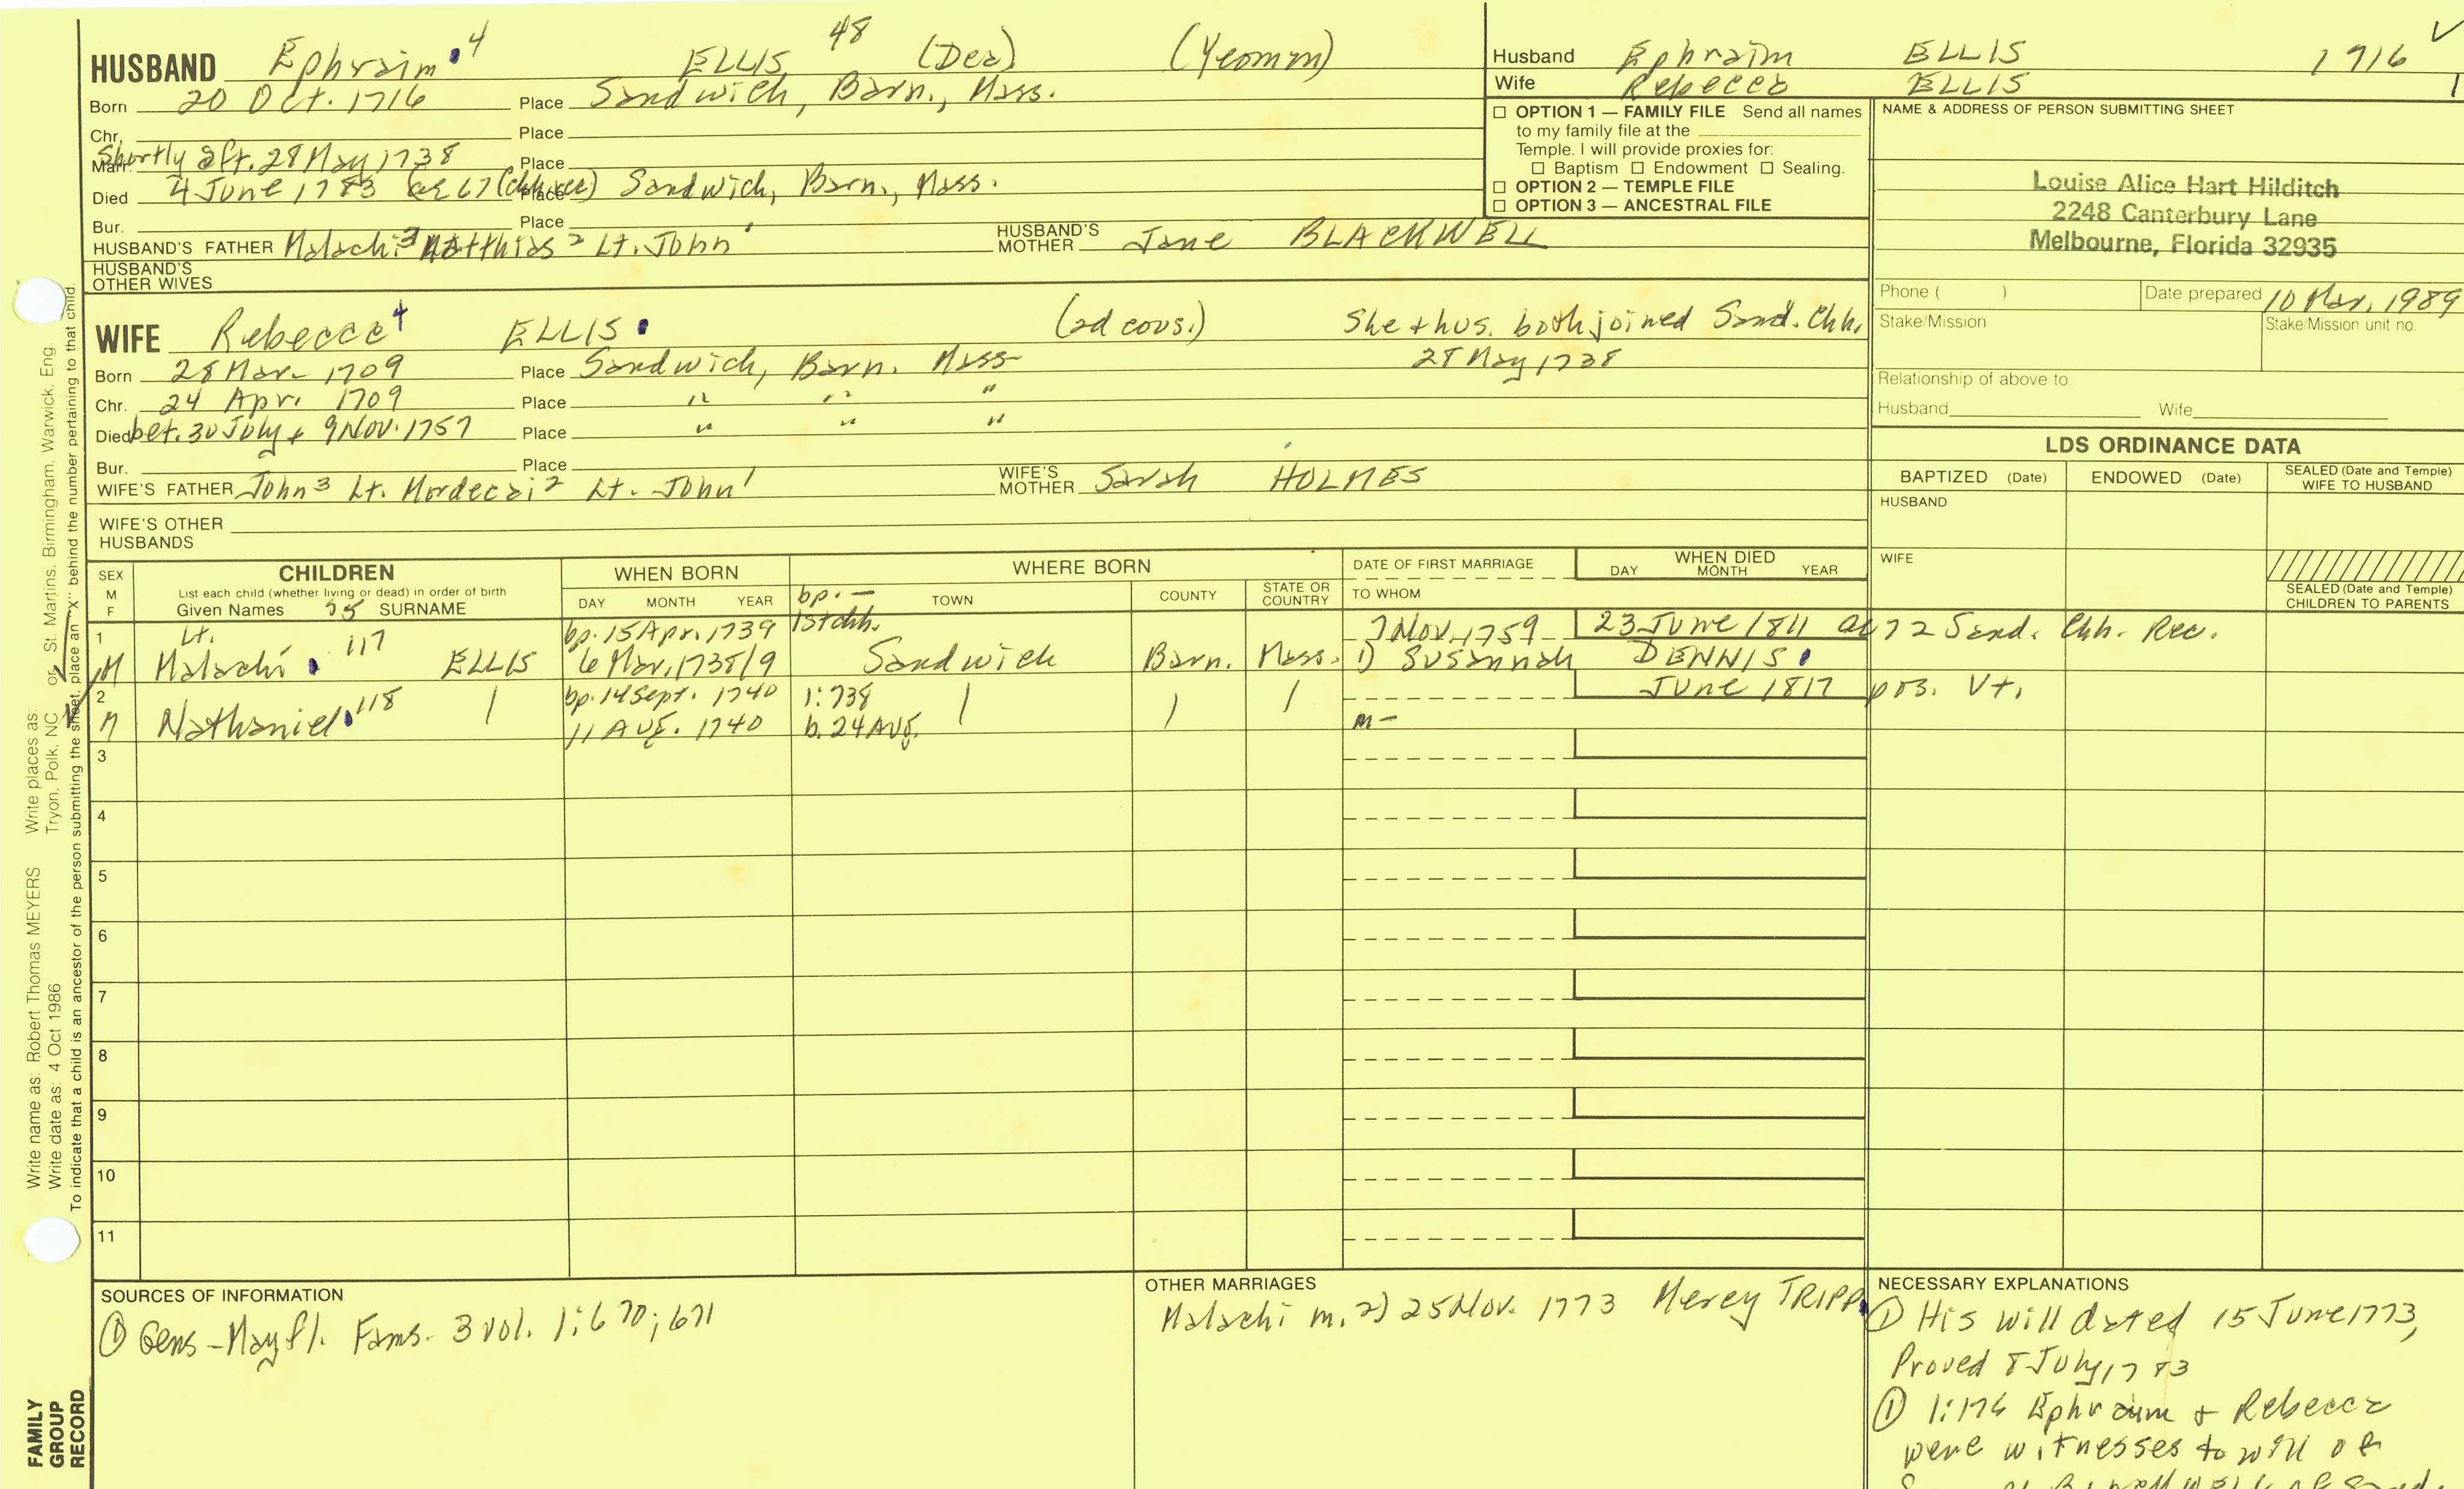 HUSBAND Ephraim 4 ELLIS 48 (Dea) (Yeoman)
Born 20 Oct. 1716 Place Sandwich, Barn., Mass.
Chr. Place
Marr. Shortly aft. 28 May 1738 Place
Died 4 June 1783 ae 67 (chh rec) Place Sandwich, Barn., Mass.
Bur. Place
HUSBAND'S FATHER Malachi 3 Matthias 2 Lt. John 1 HUSBAND'S MOTHER Jane BLACKWELL
HUSBAND'S OTHER WIVES
Husband Ephraim ELLIS 1716
Wife Rebecca ELLIS 1
OPTION 1 — FAMILY FILE Send all names
to my family file at the
Temple. I will provide proxies for:
Baptism Endowment Sealing.
OPTION 2 — TEMPLE FILE
OPTION 3 — ANCESTRAL FILE
NAME & ADDRESS OF PERSON SUBMITTING SHEET
Louise Alice Hart Hilditch
2248 Canterbury Lane
Melbourne, Florida 32935
Phone ( ) Date prepared 10 Mar. 1989
Stake/Mission Stake/Mission unit no.
Relationship of above to
Husband Wife
WIFE Rebecca 4 ELLIS (2d cous.) She + hus. both joined Sand. Chh.
28 May 1738
Born 28 Mar. 1709 Place Sandwich, Barn. Mass
Chr. 24 Apr. 1709 Place " " "
Died bet. 30 July + 9 Nov. 1757 Place " " "
Bur. Place
WIFE'S FATHER John 3 Lt. Mordecai 2 Lt. John 1 WIFE'S MOTHER Sarah HOLMES
WIFE'S OTHER HUSBANDS
LDS ORDINANCE DATA
BAPTIZED (Date) ENDOWED (Date) SEALED (Date and Temple) WIFE TO HUSBAND
HUSBAND
WIFE
SEALED (Date and Temple) CHILDREN TO PARENTS
SEX M F CHILDREN WHEN BORN WHERE BORN DATE OF FIRST MARRIAGE WHEN DIED
List each child (whether living or dead) in order of birth
Given Names SURNAME DAY MONTH YEAR bp.— TOWN COUNTY STATE OR COUNTRY TO WHOM DAY MONTH YEAR
1 Lt. 117 bp. 15 Apr. 1739 1st chh. 7 Nov. 1759 23 June 1811 ae 72 Sand. Chh. Rec.
M Malachi ELLIS 6 Mar. 1738/9 Sandwich Barn. Mass. 1) Susannah DENNIS
2 118 bp. 14 Sept. 1740 1:738 June 1817 pos. Vt.
M Nathaniel 11 Aug. 1740 b. 24 Aug. m—
3
4
5
6
7
8
9
10
11
SOURCES OF INFORMATION
① Gens - Mayfl. Fams. 3 vol. 1:670; 671
OTHER MARRIAGES
Malachi m. 2) 25 Nov. 1773 Mercy TRIPP
NECESSARY EXPLANATIONS
① His will dated 15 June 1773,
Proved 8 July 1783
① 1:176 Ephraim + Rebecca
were witnesses to will of
Write name as: Robert Thomas MEYERS Write places as: St. Martins, Birmingham, Warwick, Eng
Write date as: 4 Oct 1986 Tryon, Polk, NC or
To indicate that a child is an ancestor of the person submitting the sheet, place an "X" behind the number pertaining to that child.
FAMILY
GROUP
RECORD